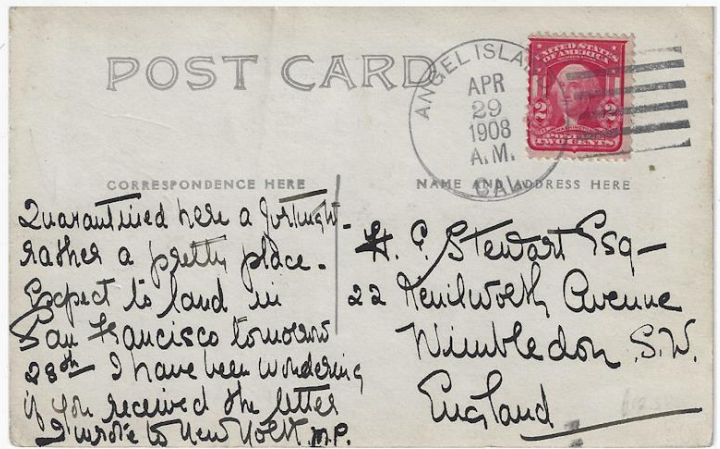 POST CARD
ANGEL ISLA
APR
29
1908
A.M.
CAL.
UNITED STATES
OF AMERICA
2 2
POSTAGE
TWO CENTS
CORRESPONDENCE HERE
NAME AND ADDRESS HERE
Quarantined here a fortnight -
rather a pretty place -
Expect to land in
San Francisco tomorrow
28th - I have been wondering
if you received the letter
I wrote to New York. M.P.
H. C. Stewart Esq -
22 Kenilworth Avenue
Wimbledon. S.W.
England